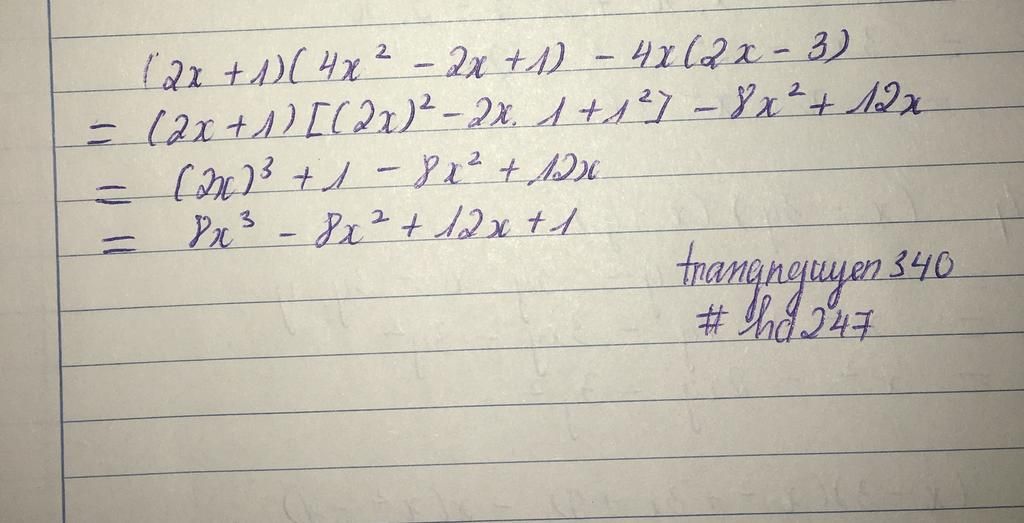 (2x + 1)(4x² - 2x + 1) - 4x(2x - 3)
= (2x + 1)[(2x)² - 2x. 1 + 1²] - 8x² + 12x
= (2x)³ + 1 - 8x² + 12x
= 8x³ - 8x² + 12x + 1
trangnguyen 340
# hd 247